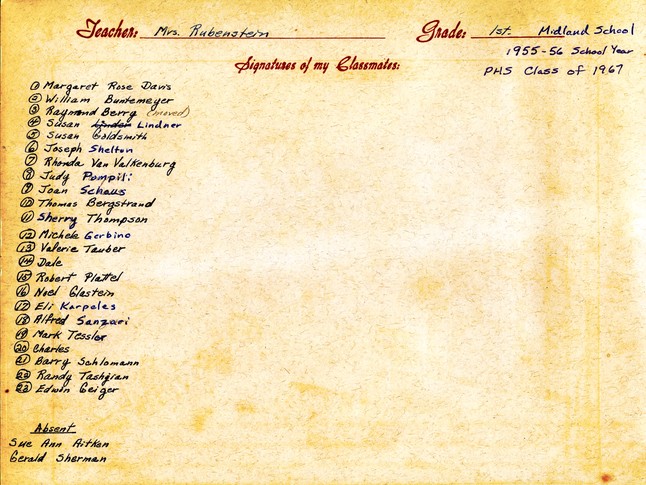 Teacher: Mrs. Rubenstein Grade: 1st. Midland School
1955-56 School Year
Signatures of my Classmates: PHS Class of 1967
1 Margaret Rose Davis
2 William Buntemeyer
3 Raymond Berry (moved)
4 Susan Linder Lindner
5 Susan Goldsmith
6 Joseph Shelton
7 Rhonda Van Valkenburg
8 Judy Pompili
9 Joan Schaus
10 Thomas Bergstrand
11 Sherry Thompson
12 Michele Gerbino
13 Valerie Tauber
14 Dale
15 Robert Plattel
16 Noel Glastein
17 Eli Karpeles
18 Alfred Sanzari
19 Mark Tessler
20 Charles
21 Barry Schlomann
22 Randy Tashjian
23 Edwin Geiger
Absent
Sue Ann Aitken
Gerald Sherman